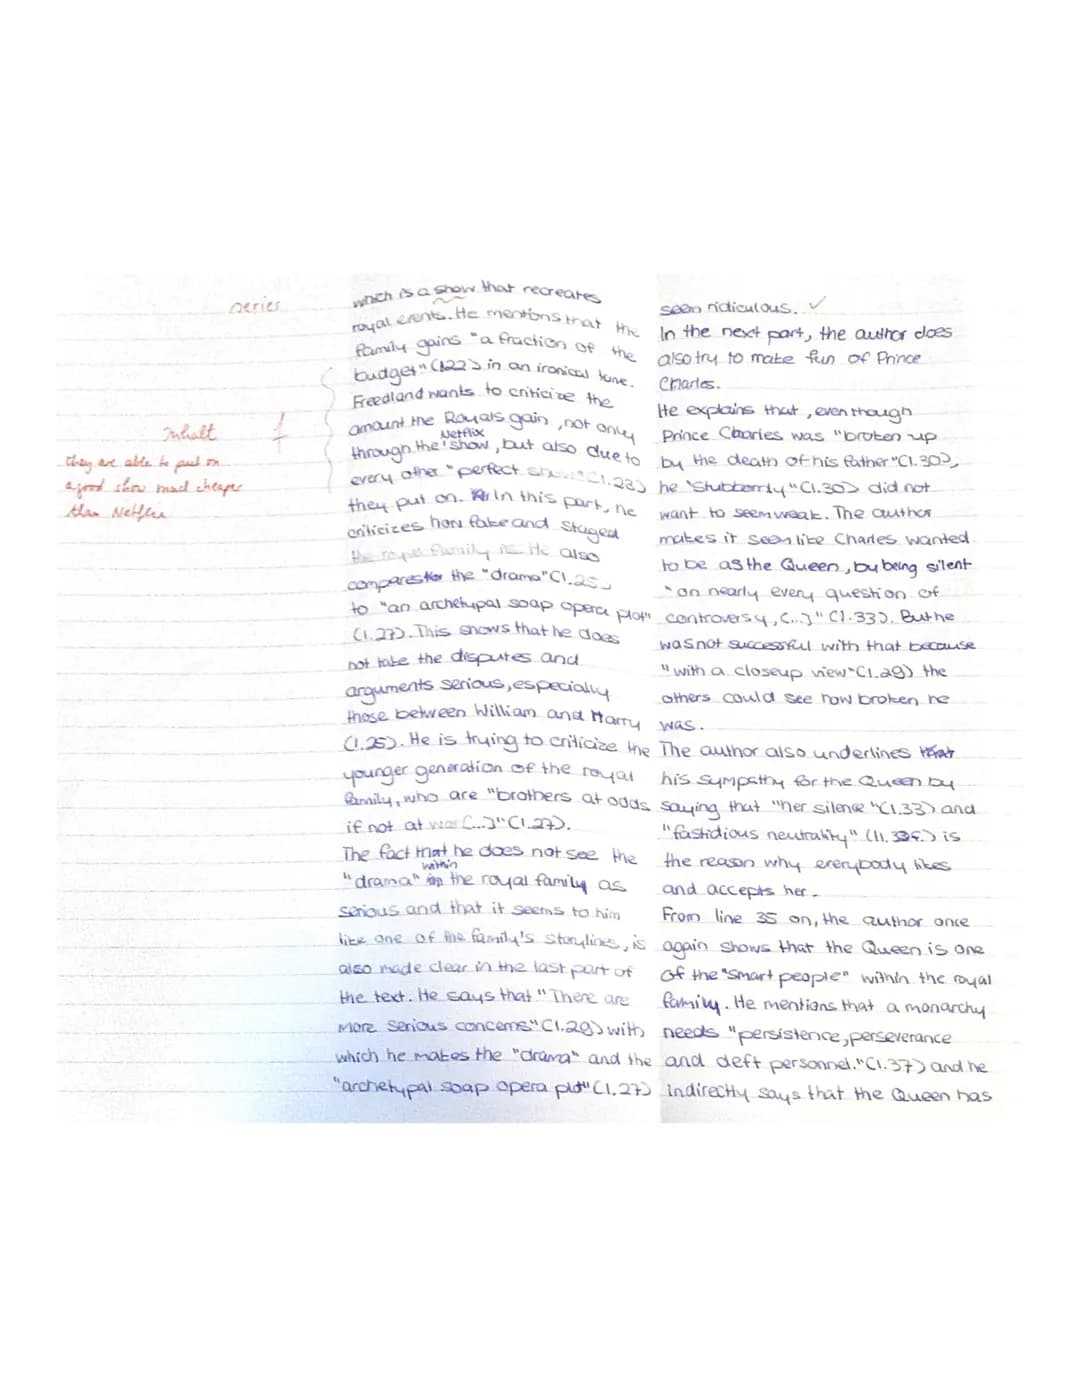 series
Inhalt f
they are able to put on
a good show much cheaper
than Netflix
which is a show that recreates
royal events. He mentions that the
family gains "a fraction of the
budget" (l22) in an ironical tone.
Freedland wants to criticize the
amount the Royals gain, not only
through the Netflix show, but also due to
every other "perfect show" (l.23)
they put on. In this part, he
criticizes how fake and staged
the royal family is. He also
compares the "drama" (l.25)
to "an archetypal soap opera plot"
(l.27). This shows that he does
not take the disputes and
arguments serious, especially
those between William and Harry
(l.25). He is trying to criticize the
younger generation of the royal
family, who are "brothers at odds
if not at war [...]" (l.27).
The fact that he does not see the
"drama" within the royal family as
serious and that it seems to him
like one of the family's storylines, is
also made clear in the last part of
the text. He says that "There are
more serious concerns" (l.28) with
which he makes the "drama" and the
"archetypal soap opera plot" (l.27)
seen ridiculous. ✓
In the next part, the author does
also try to make fun of Prince
Charles.
He explains that, even though
Prince Charles was "broken up
by the death of his father" (l.30),
he "stubbornly" (l.30) did not
want to seem weak. The author
makes it seem like Charles wanted
to be as the Queen, by being silent
"on nearly every question of
controversy, [...]" (l.33). But he
was not successful with that because
"with a closeup view" (l.29) the
others could see how broken he
was.
The author also underlines
his sympathy for the Queen by
saying that "her silence" (l.33) and
"fastidious neutrality" (ll.33f.) is
the reason why everybody likes
and accepts her.
From line 35 on, the author once
again shows that the Queen is one
of the "smart people" within the royal
family. He mentions that a monarchy
needs "persistence, perseverance
and deft personnel." (l.37) and he
indirectly says that the Queen has